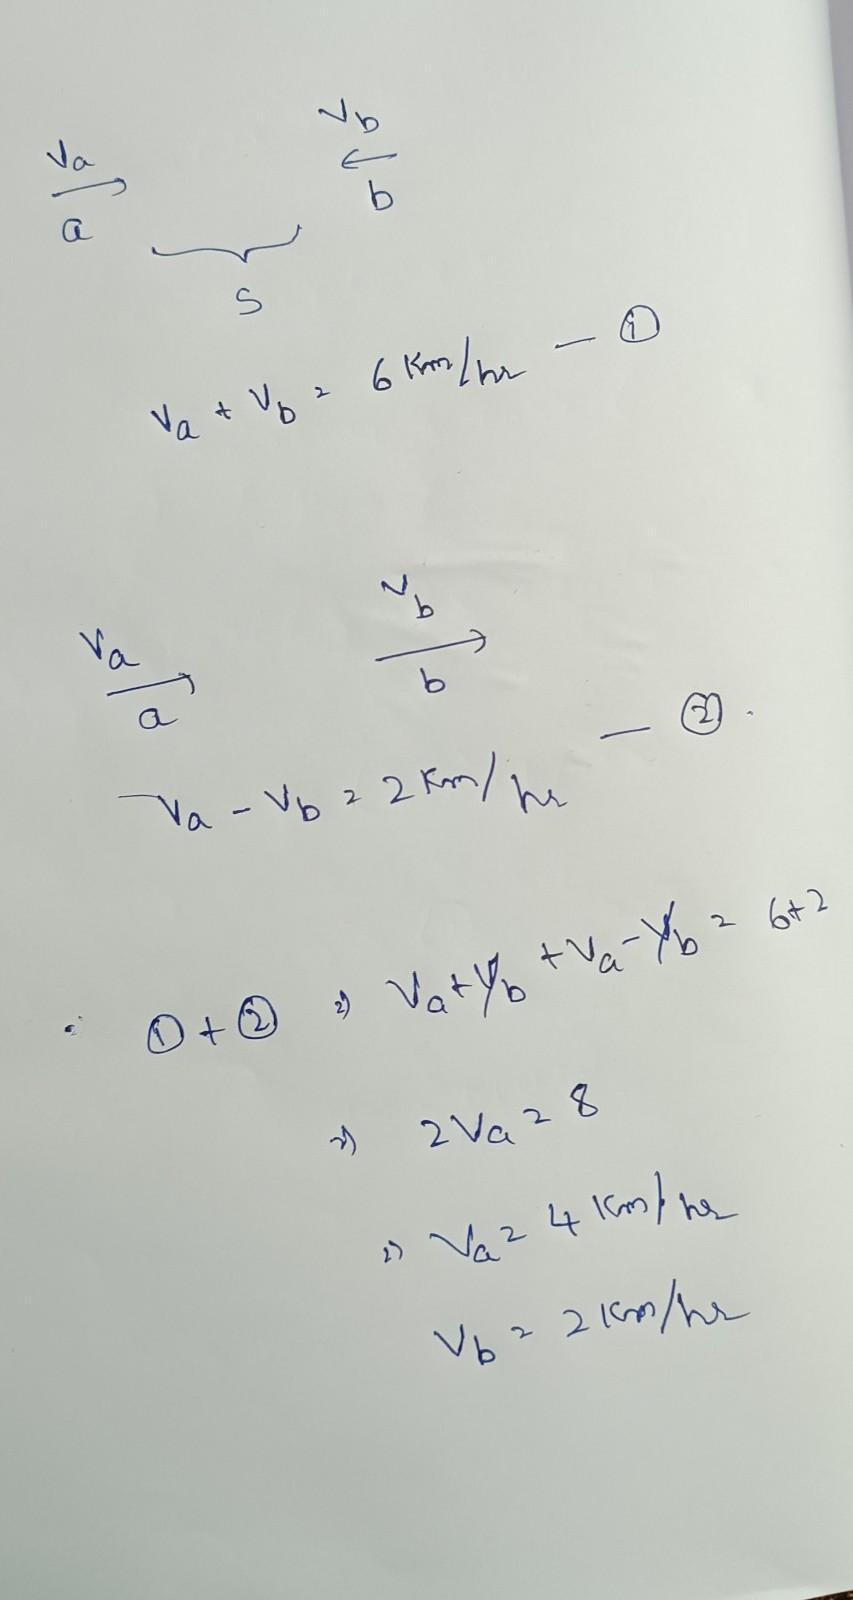 Va Vb
a b
S
Va + Vb = 6 Km/hr — ①
Va Vb
a b
Va - Vb = 2 Km/hr — ②.
∴ ① + ② ⇒ Va + Vb + Va - Vb = 6+2
⇒ 2Va = 8
⇒ Va = 4 Km/hr
Vb = 2 Km/hr